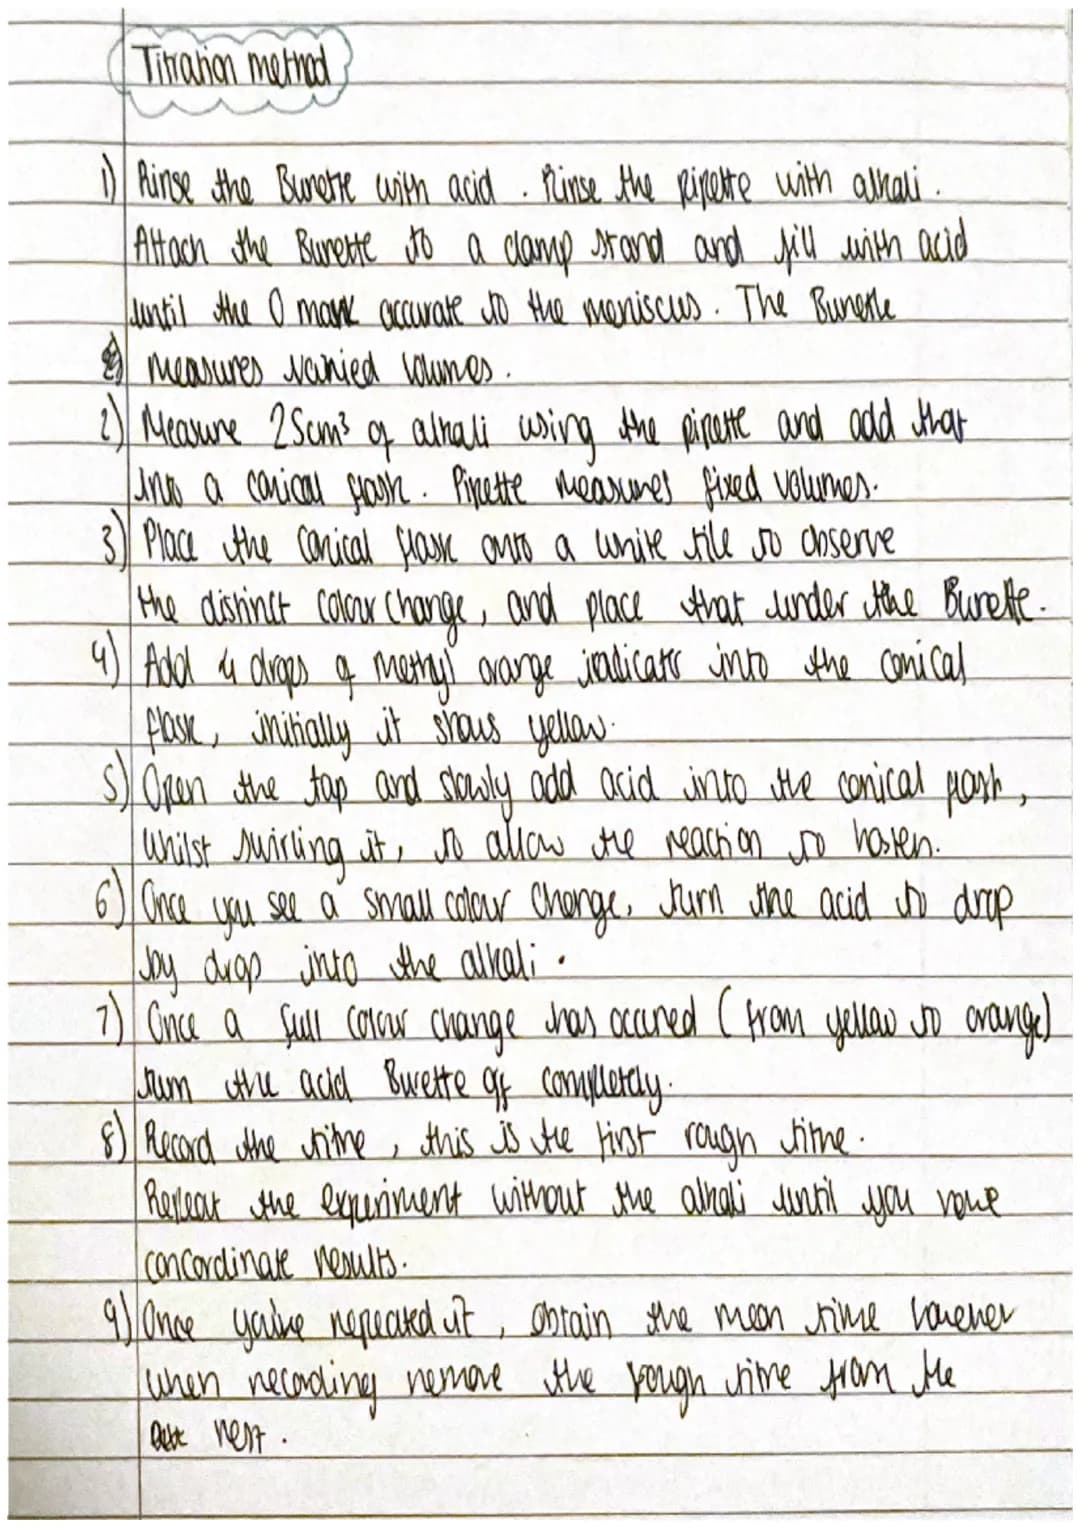 Titration method
1) Rinse the Burette with acid. Rinse the pipette with alkali.
Attach the Burette to a clamp stand and fill with acid
until the 0 mark accurate to the meniscus. The Burette
measures varied volumes.
2) Measure 25cm³ of alkali using the pipette and add that
into a conical flask. Pipette measures fixed volumes.
3) Place the conical flask onto a white tile to observe
the distinct colour change, and place that under the Burette.
4) Add 4 drops of methyl orange indicator into the conical
flask, initially it shows yellow.
5) Open the tap and slowly add acid into the conical flask,
whilst swirling it, to allow the reaction to hasten.
6) Once you see a small colour change, turn the acid to drop
by drop into the alkali.
7) Once a full colour change has occured (from yellow to orange)
turn the acid Burette off completely.
8) Record the titre, this is the first rough titre.
Repeat the experiment without the alkali until you have
concordinate results.
9) Once you've repeated it, obtain the mean titre however
when recording remove the rough titre from the
rest.